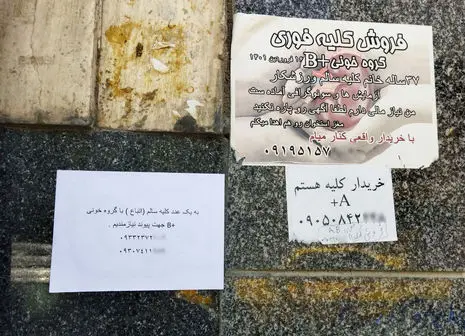 فروش کلیه فوری
گروه خونی +B ۱۲ فروردین ۱۴۰۱
۳۷ساله خانم کلیه سالم ورزشکار
آزمایش ها و سونوگرافی آماده ست
من نیاز مالی دارم لطفا آگهی رو پاره نکنید
مغز استخوان رو هم اهدا میکنم
با خریدار واقعی کنار میام
۰۹۱۹۵۱۵۷
خریدار کلیه هستم
A+
۰۹۰۵۰۸۴۲
به یک عدد کلیه سالم (اتباع) با گروه خونی
B+ جهت پیوند نیازمندیم .
۰۹۳۳۲۳۷۲
۰۹۳۰۷۴۱۱